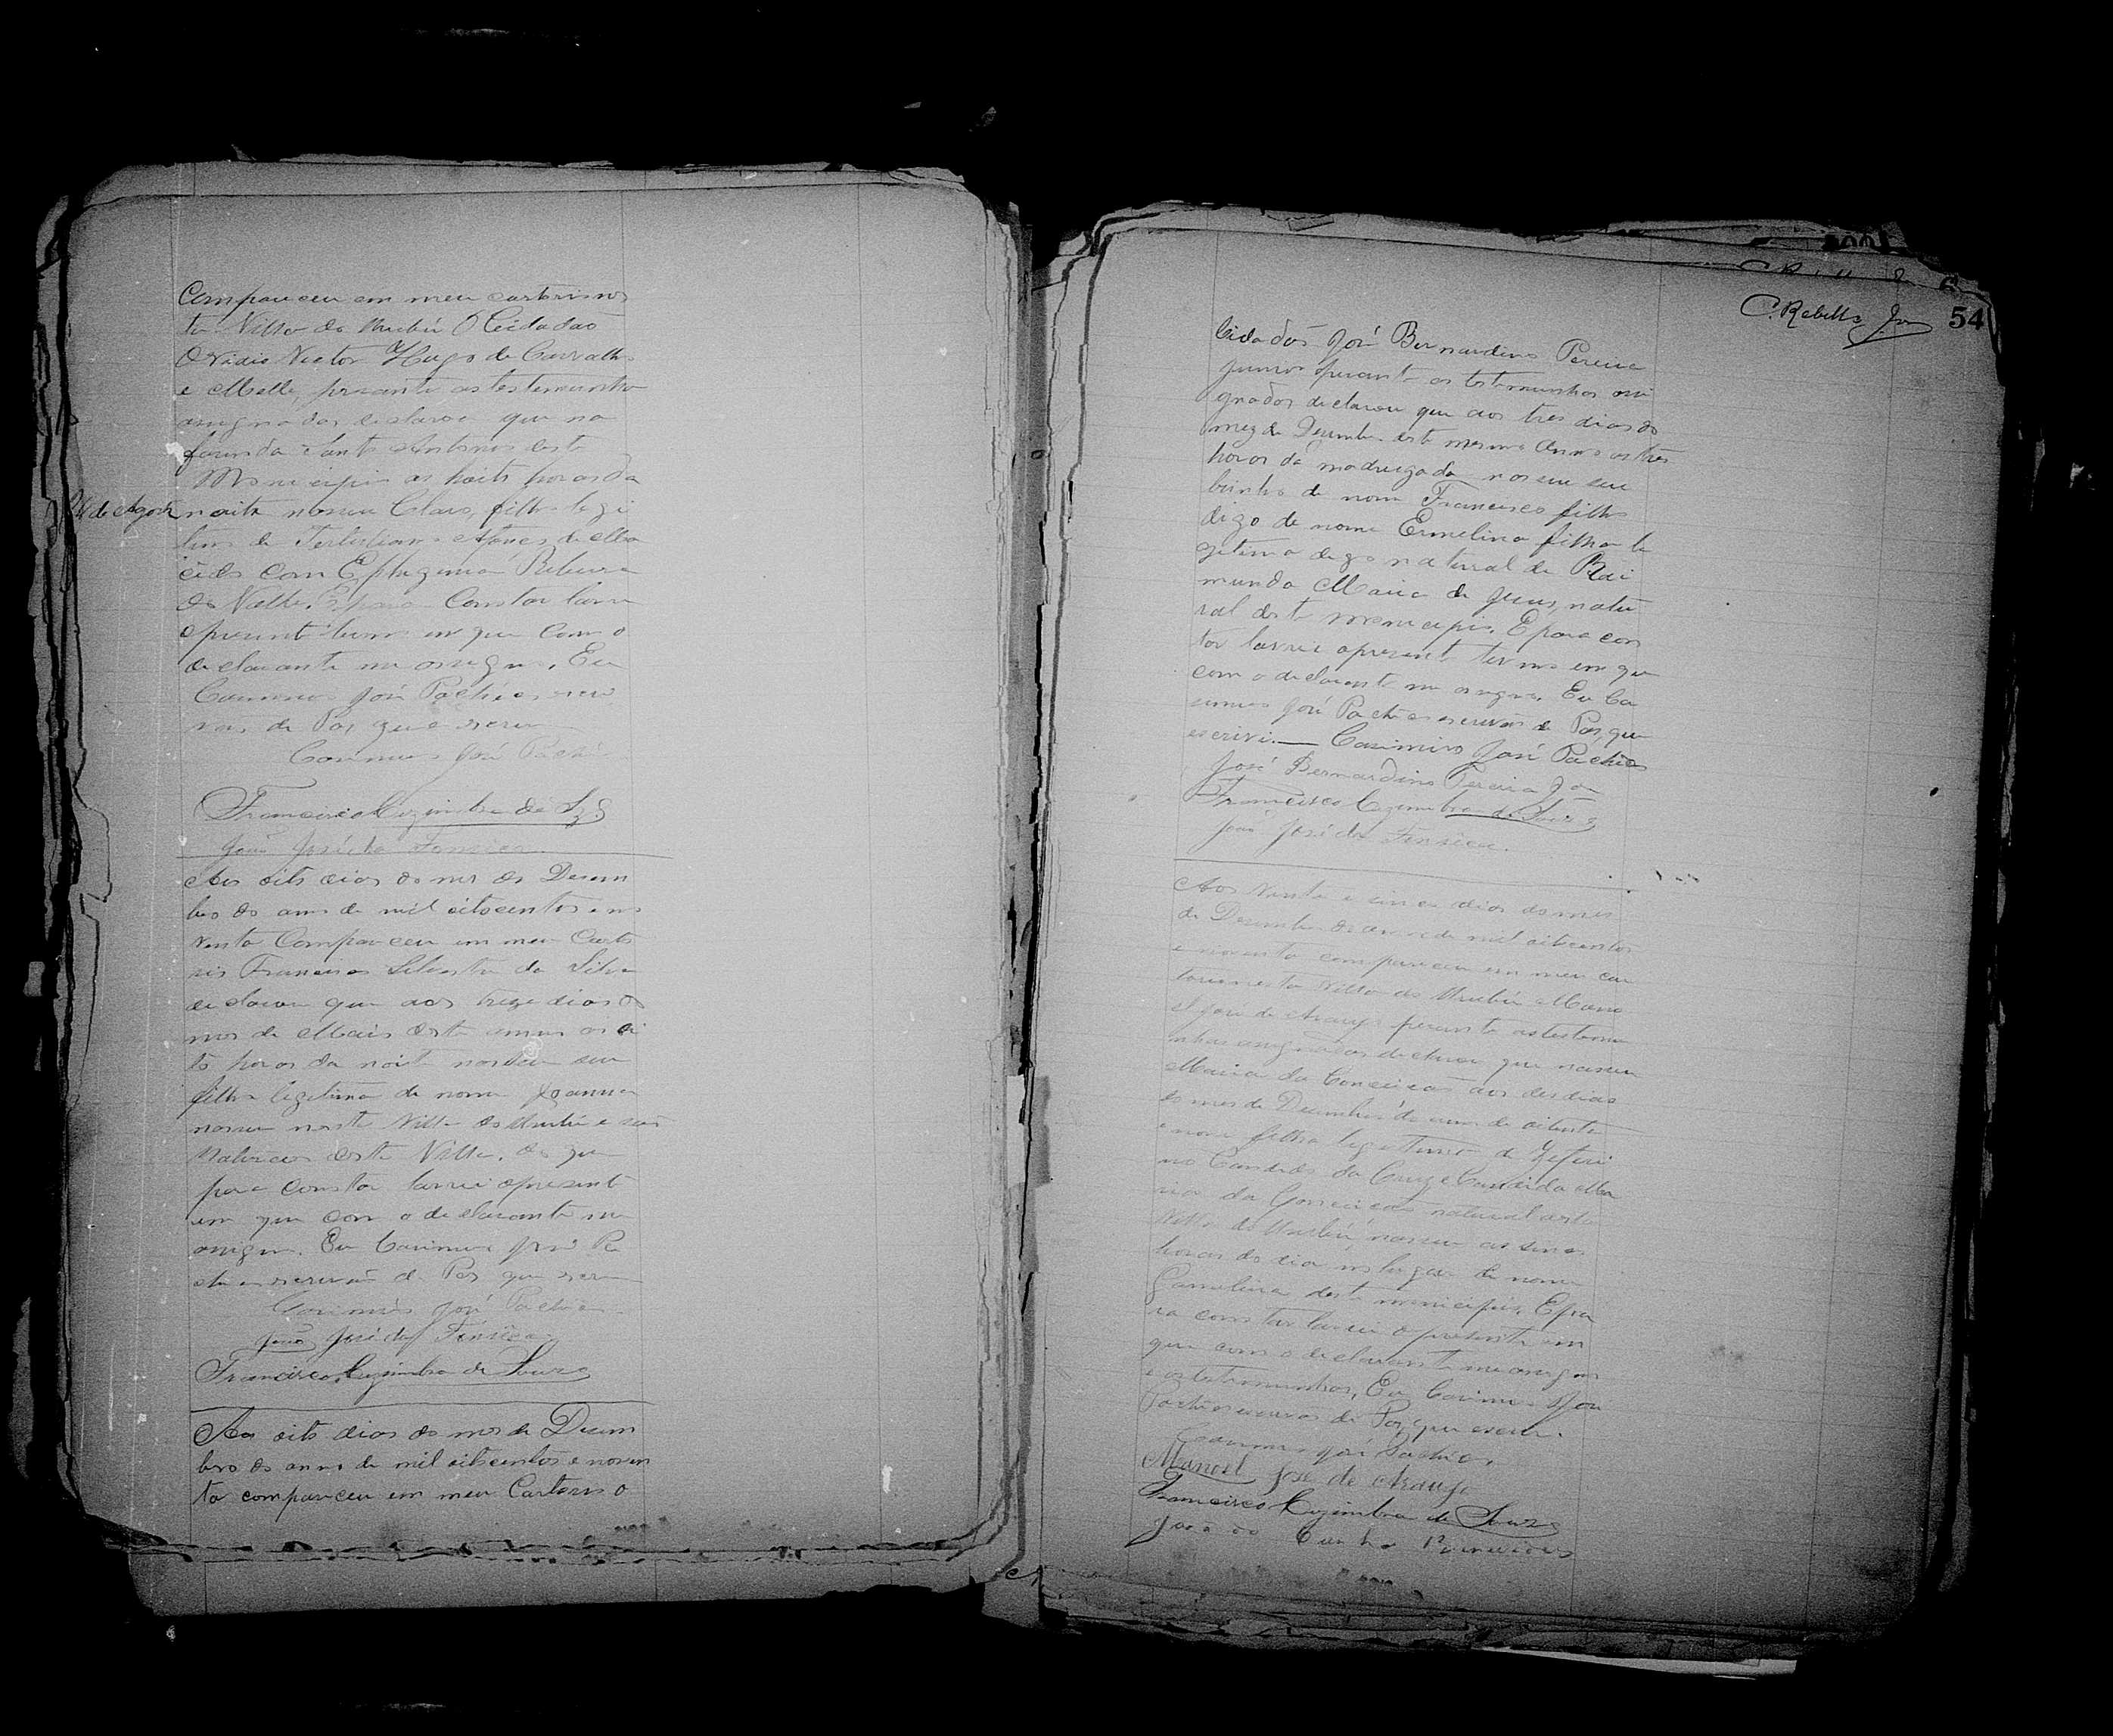 Compareceu em meu cartorio nes
ta Villa do Urubú O Cidadão
Ovidio Victor Hugo de Carvalho
e Mello, perante as testemunhas
assignadas declarou que na
fazenda Santo Antonio deste
Municipio as hoito horas da
24 de Agosto noite nasceu Claro, filho legi
timo de Tertuliano Alves de Ma
cêdo com Ephigenia Ribeiro
do Valle. E para Constar lavrei
o presente termo em que com o
declarante me assigno. Eu
Casimiro José Pachêco escri
vão de Paz que escrevi
Casimiro José Pachêco
Francisco Cuzimbra de Sza
João José da Fonseca
Aos oito dias do mes de Desem
bro do anno de mil oitocentos e no
venta Compareceu em meu Carto
rio Francisco Silvestre da Silva
declarou que aos treze dias do
mes de Maio deste anno as oi
to horas da noite nasceu seu
filho legitimo de nome Joanna
nasceu nesta Villa do Urubú e são
Naturaes desta Villa, do que
para constar lavrei o presente
em que com o declarante me
assigno. Eu Casimiro José Pa
checo escrivão de Paz que escrevi
Casimiro José Pachêco
João José da Fonsêca
Francisco Cuzimbra de Souza
Aos oito dias do mes de Desem
bro do anno de mil oitocentos e noven
ta compareceu em meu Cartorio o
C. Rebello Jor 54
Cidadão José Bernardino Pereira
Junior perante as testemunhas assi
gnadas declarou que aos tres dias do
mez de Desembro deste mesmo Anno as tres
horas da madrugada nasceu seu
brinho de nome Francisco filho
digo de nome Ermelina filha le
gitima digo natural de Rai
munda Maria de Jesus, natu
ral deste municipio. E para cons
tar lavrei o presente termo em que
com o declarante me assigno. Eu Ca
simiro José Pachêco escrivão de Paz, que
escrivi. Casimiro José Pachêco
José Bernardino Pereira Jor
Francisco Cuzimbra de Souza
João José da Fonsêca.
Aos vinte e cinco dias do mes
de Desembro do anno de mil oitocentos
e noventa compareceu em meu car
torio nesta Villa do Urubú Mano
el José de Araujo perante as testemu
nhas assignadas declarou que nasceu
Maria da Conceicão aos des dias
do mes de Desembro do anno de oitenta
e nove filha legitima de Zeferi
no Candido da Cruz e Candida Ma
ria da Conceicão natural desta
Villa do Urubú, nasceu as cinco
horas do dia no lugar de nome
Gamelina deste municipio. E pa
ra constar lavrei o presente em
que com o declarante me assigno
e as testemunhas, Eu Casimiro José
Pachêco escrivão de Paz, que escrevi.
Casimiro José Pachêco.
Manoel José de Araujo
Francisco Cuzimbra de Souza
João da Cunha